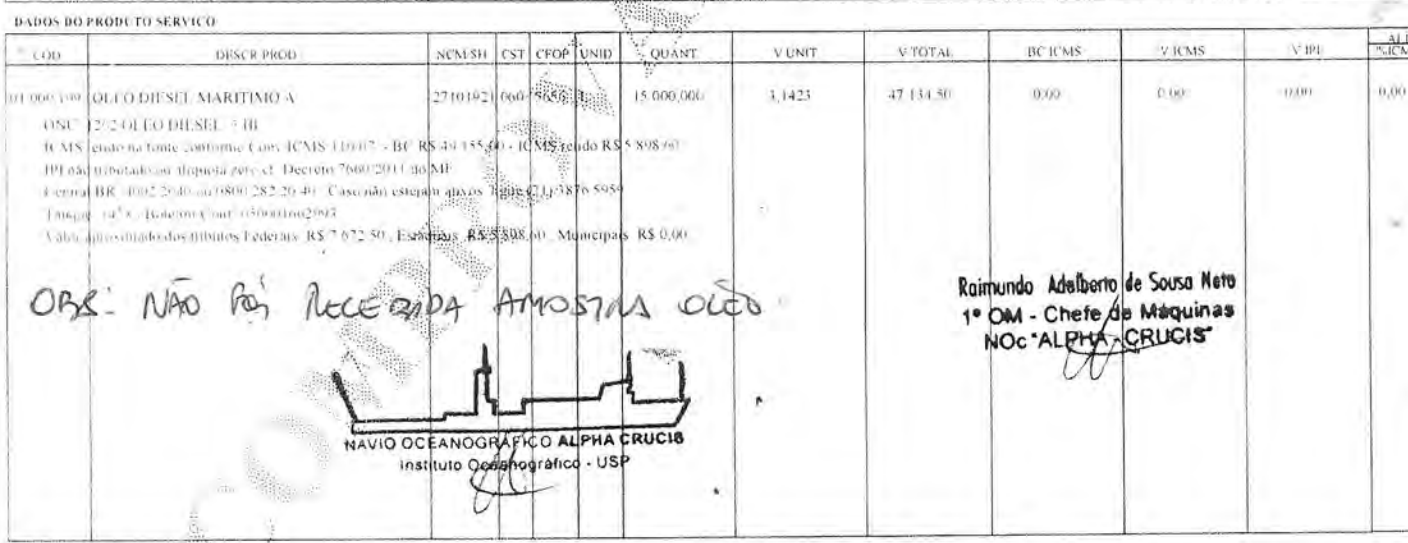 DADOS DO PRODUTO SERVICO
COD DESCR PROD NCM/SH CST CFOP UNID QUANT V UNIT V TOTAL BC ICMS V ICMS V IPI
OLEO DIESEL MARITIMO A 27101921 060 15.000,000 3,1423 47.134,50 0,00 0,00 0,00 0,00
OLEO DIESEL
na fonte conforme Conv ICMS 110/07 - BC R$ ICMS retido R$ 5.898,60
IPI não tributado ou aliquota zero cf. Decreto 7660/2011 do MF
Central BR 0800 282 20 40 Caso não estejam ligue (21) 3876 5959
Valor aproximado dos tributos Federais R$ 7.672,50, Estaduais R$ 5.898,60, Municipais R$ 0,00
OBS: NÃO FOI RECEBIDA AMOSTRA OLEO
Raimundo Adelberto de Sousa Neto
1º OM - Chefe de Máquinas
NOc "ALPHA CRUCIS"
NAVIO OCEANOGRÁFICO ALPHA CRUCIS
Instituto Oceanográfico - USP